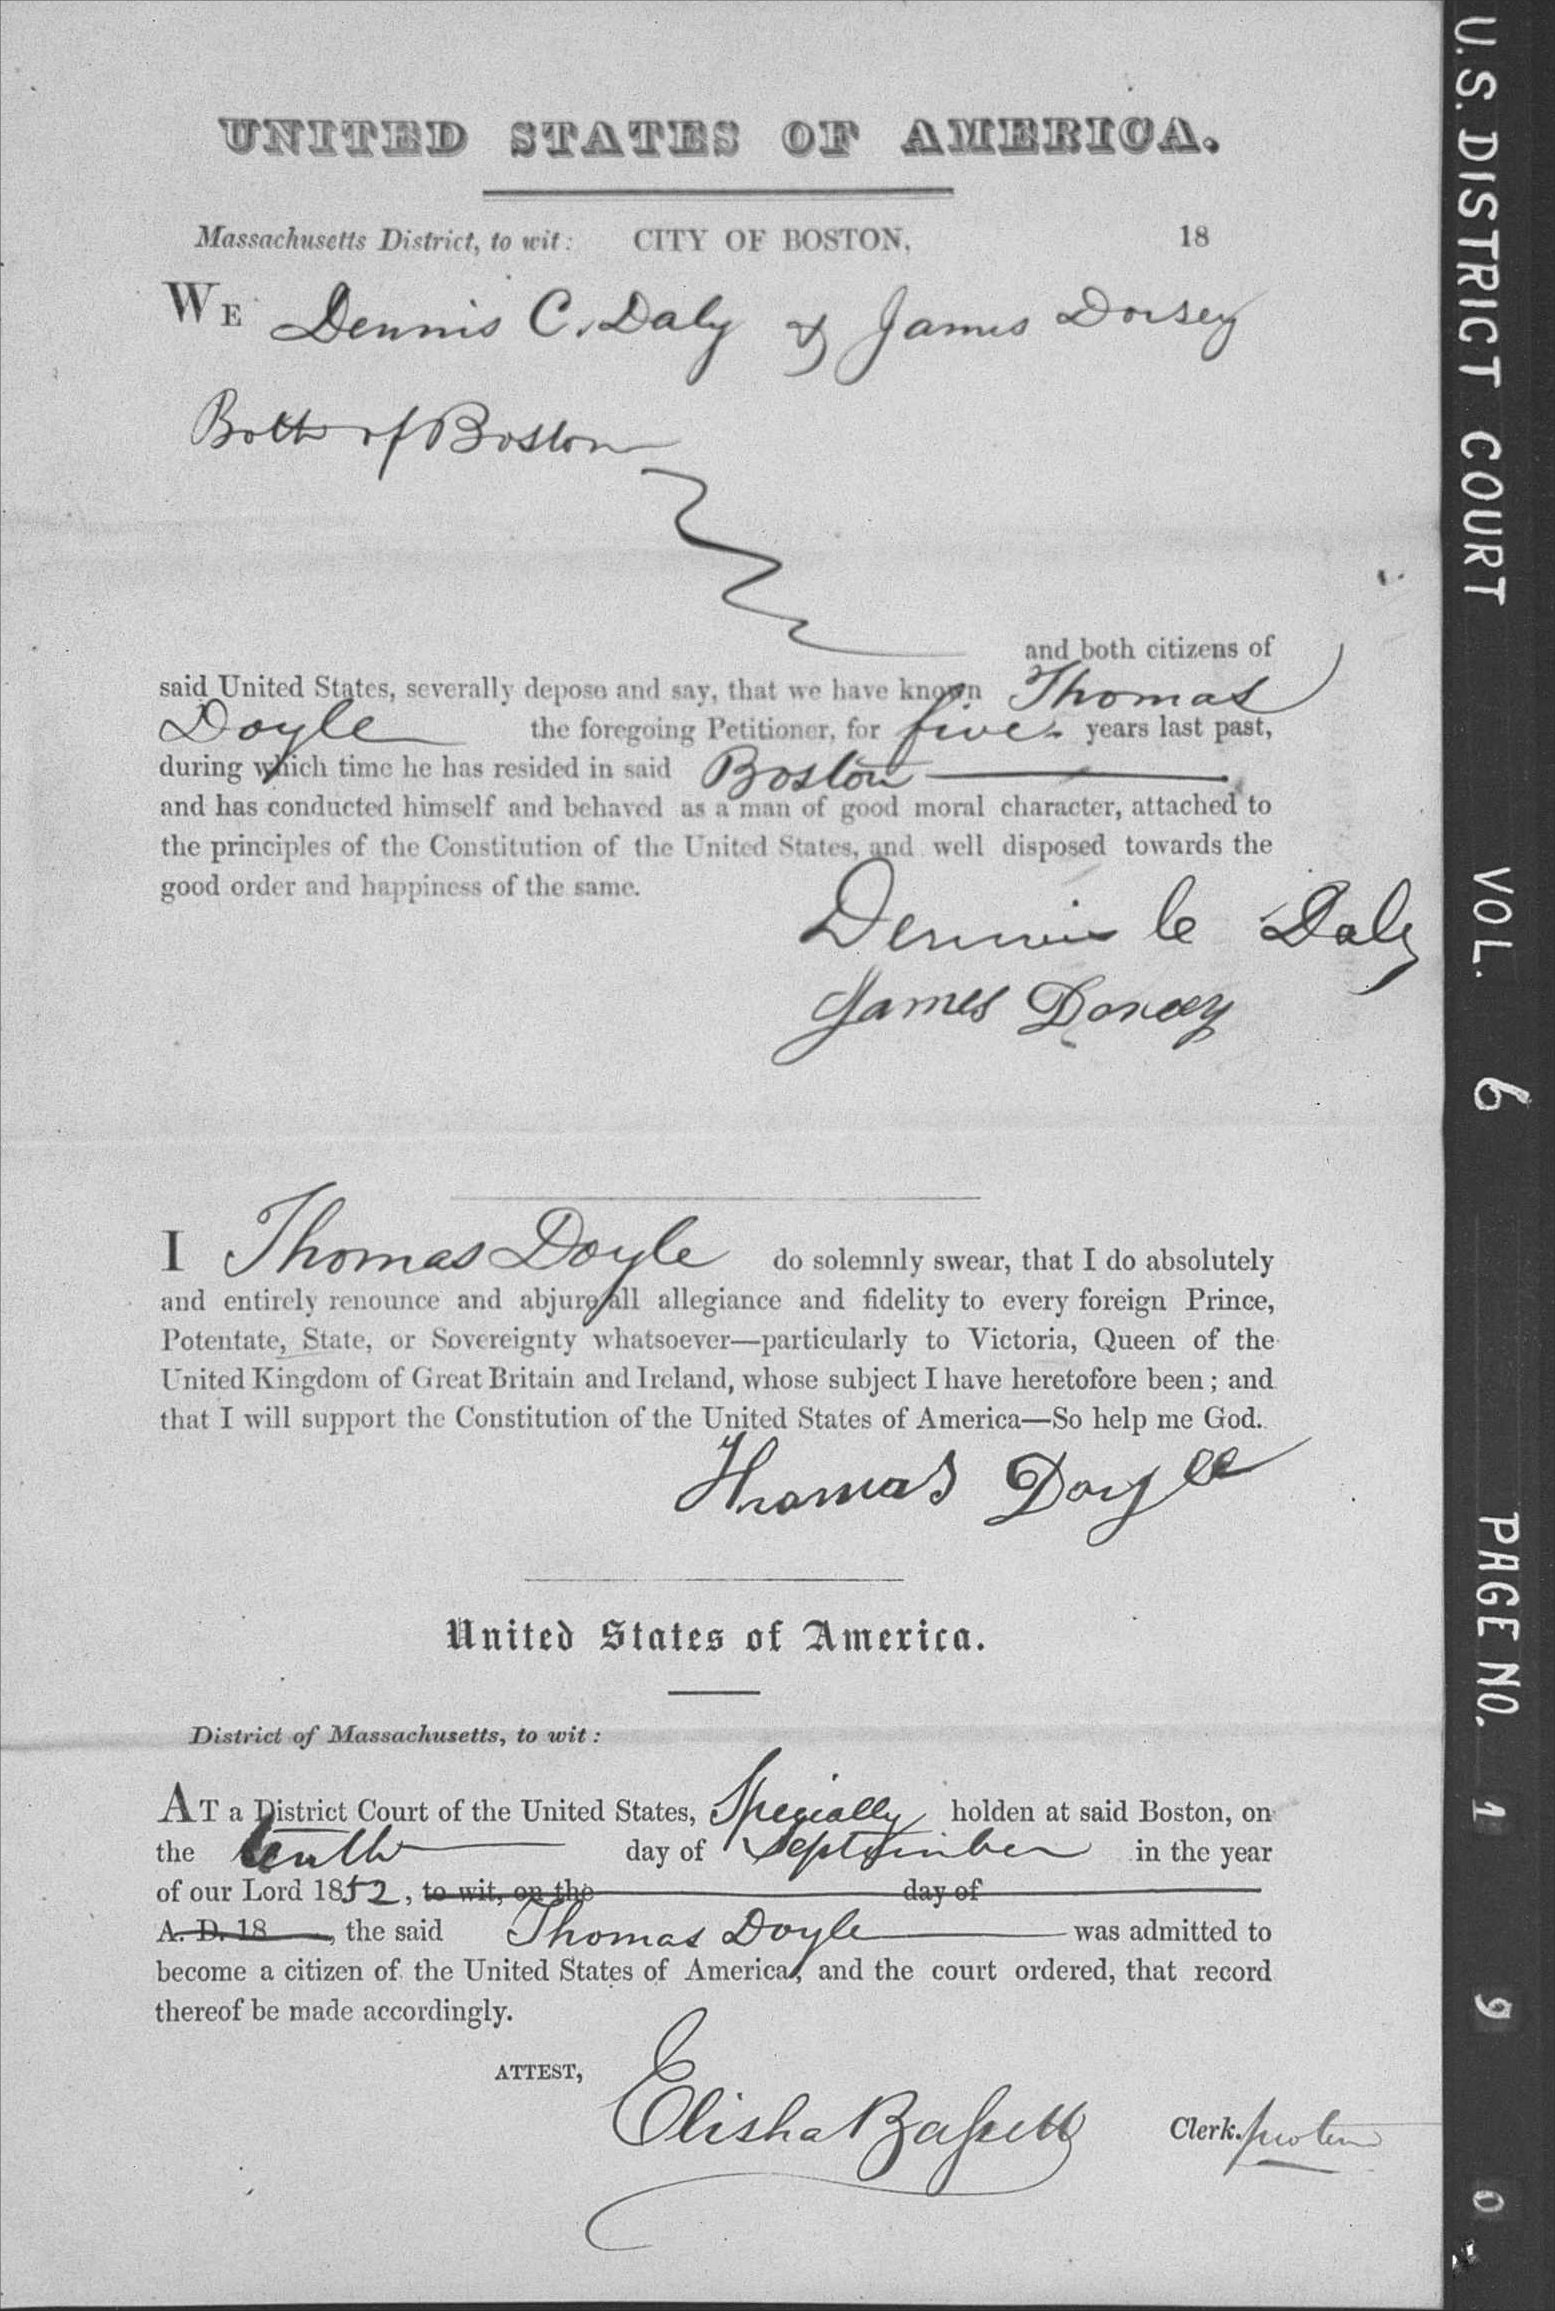 UNITED STATES OF AMERICA.
Massachusetts District, to wit: CITY OF BOSTON, 18
WE Dennis C. Daly & James Dorsey
Both of Boston
and both citizens of
said United States, severally depose and say, that we have known Thomas
Doyle the foregoing Petitioner, for five years last past,
during which time he has resided in said Boston
and has conducted himself and behaved as a man of good moral character, attached to
the principles of the Constitution of the United States, and well disposed towards the
good order and happiness of the same.
Dennis C Daly
James Dorsey
I Thomas Doyle do solemnly swear, that I do absolutely
and entirely renounce and abjure all allegiance and fidelity to every foreign Prince,
Potentate, State, or Sovereignty whatsoever—particularly to Victoria, Queen of the
United Kingdom of Great Britain and Ireland, whose subject I have heretofore been; and
that I will support the Constitution of the United States of America—So help me God.
Thomas Doyle
United States of America.
District of Massachusetts, to wit:
AT a District Court of the United States, Specially holden at said Boston, on
the tenth day of September in the year
of our Lord 1852, to wit, on the day of
A. D. 18 , the said Thomas Doyle was admitted to
become a citizen of the United States of America, and the court ordered, that record
thereof be made accordingly.
ATTEST,
Elisha Bassett Clerk. pro tem
U.S. DISTRICT COURT VOL. 6 PAGE NO. 190